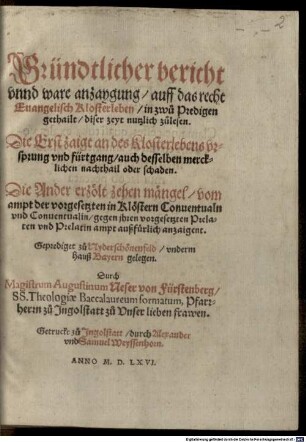 Gründtlicher bericht
vnnd ware anzaygung / auff das recht
Euangelisch Klosterleben / in zwů Predigen
gethailt / diser zeyt nutzlich zůlesen.
Die Erst zaigt an des Klosterlebens vr-
sprung vnd fürtgang / auch desselben merck-
lichen nachthail oder schaden.
Die Ander erzölt zehen mängel / vom
ampt der vorgesetzten in Klöstern Conuentualn
vnd Conuentualin / gegen jhren vorgesetzten Prela-
ten vnd Prelatin ampt außfürlich anzaigent.
Geprediget zů Nyderschönenfeld / vnderm
hauß Bayern gelegen.
Durch
Magistrum Augustinum Neser von Fürstenberg /
SS. Theologiæ Baccalaureum formatum, Pfarr-
herrn zů Ingolstatt zů Vnser lieben frawen.
Getruckt zů Ingolstatt / durch Alexander
vnd Samuel Weyssenhorn.
ANNO M. D. LXVI.